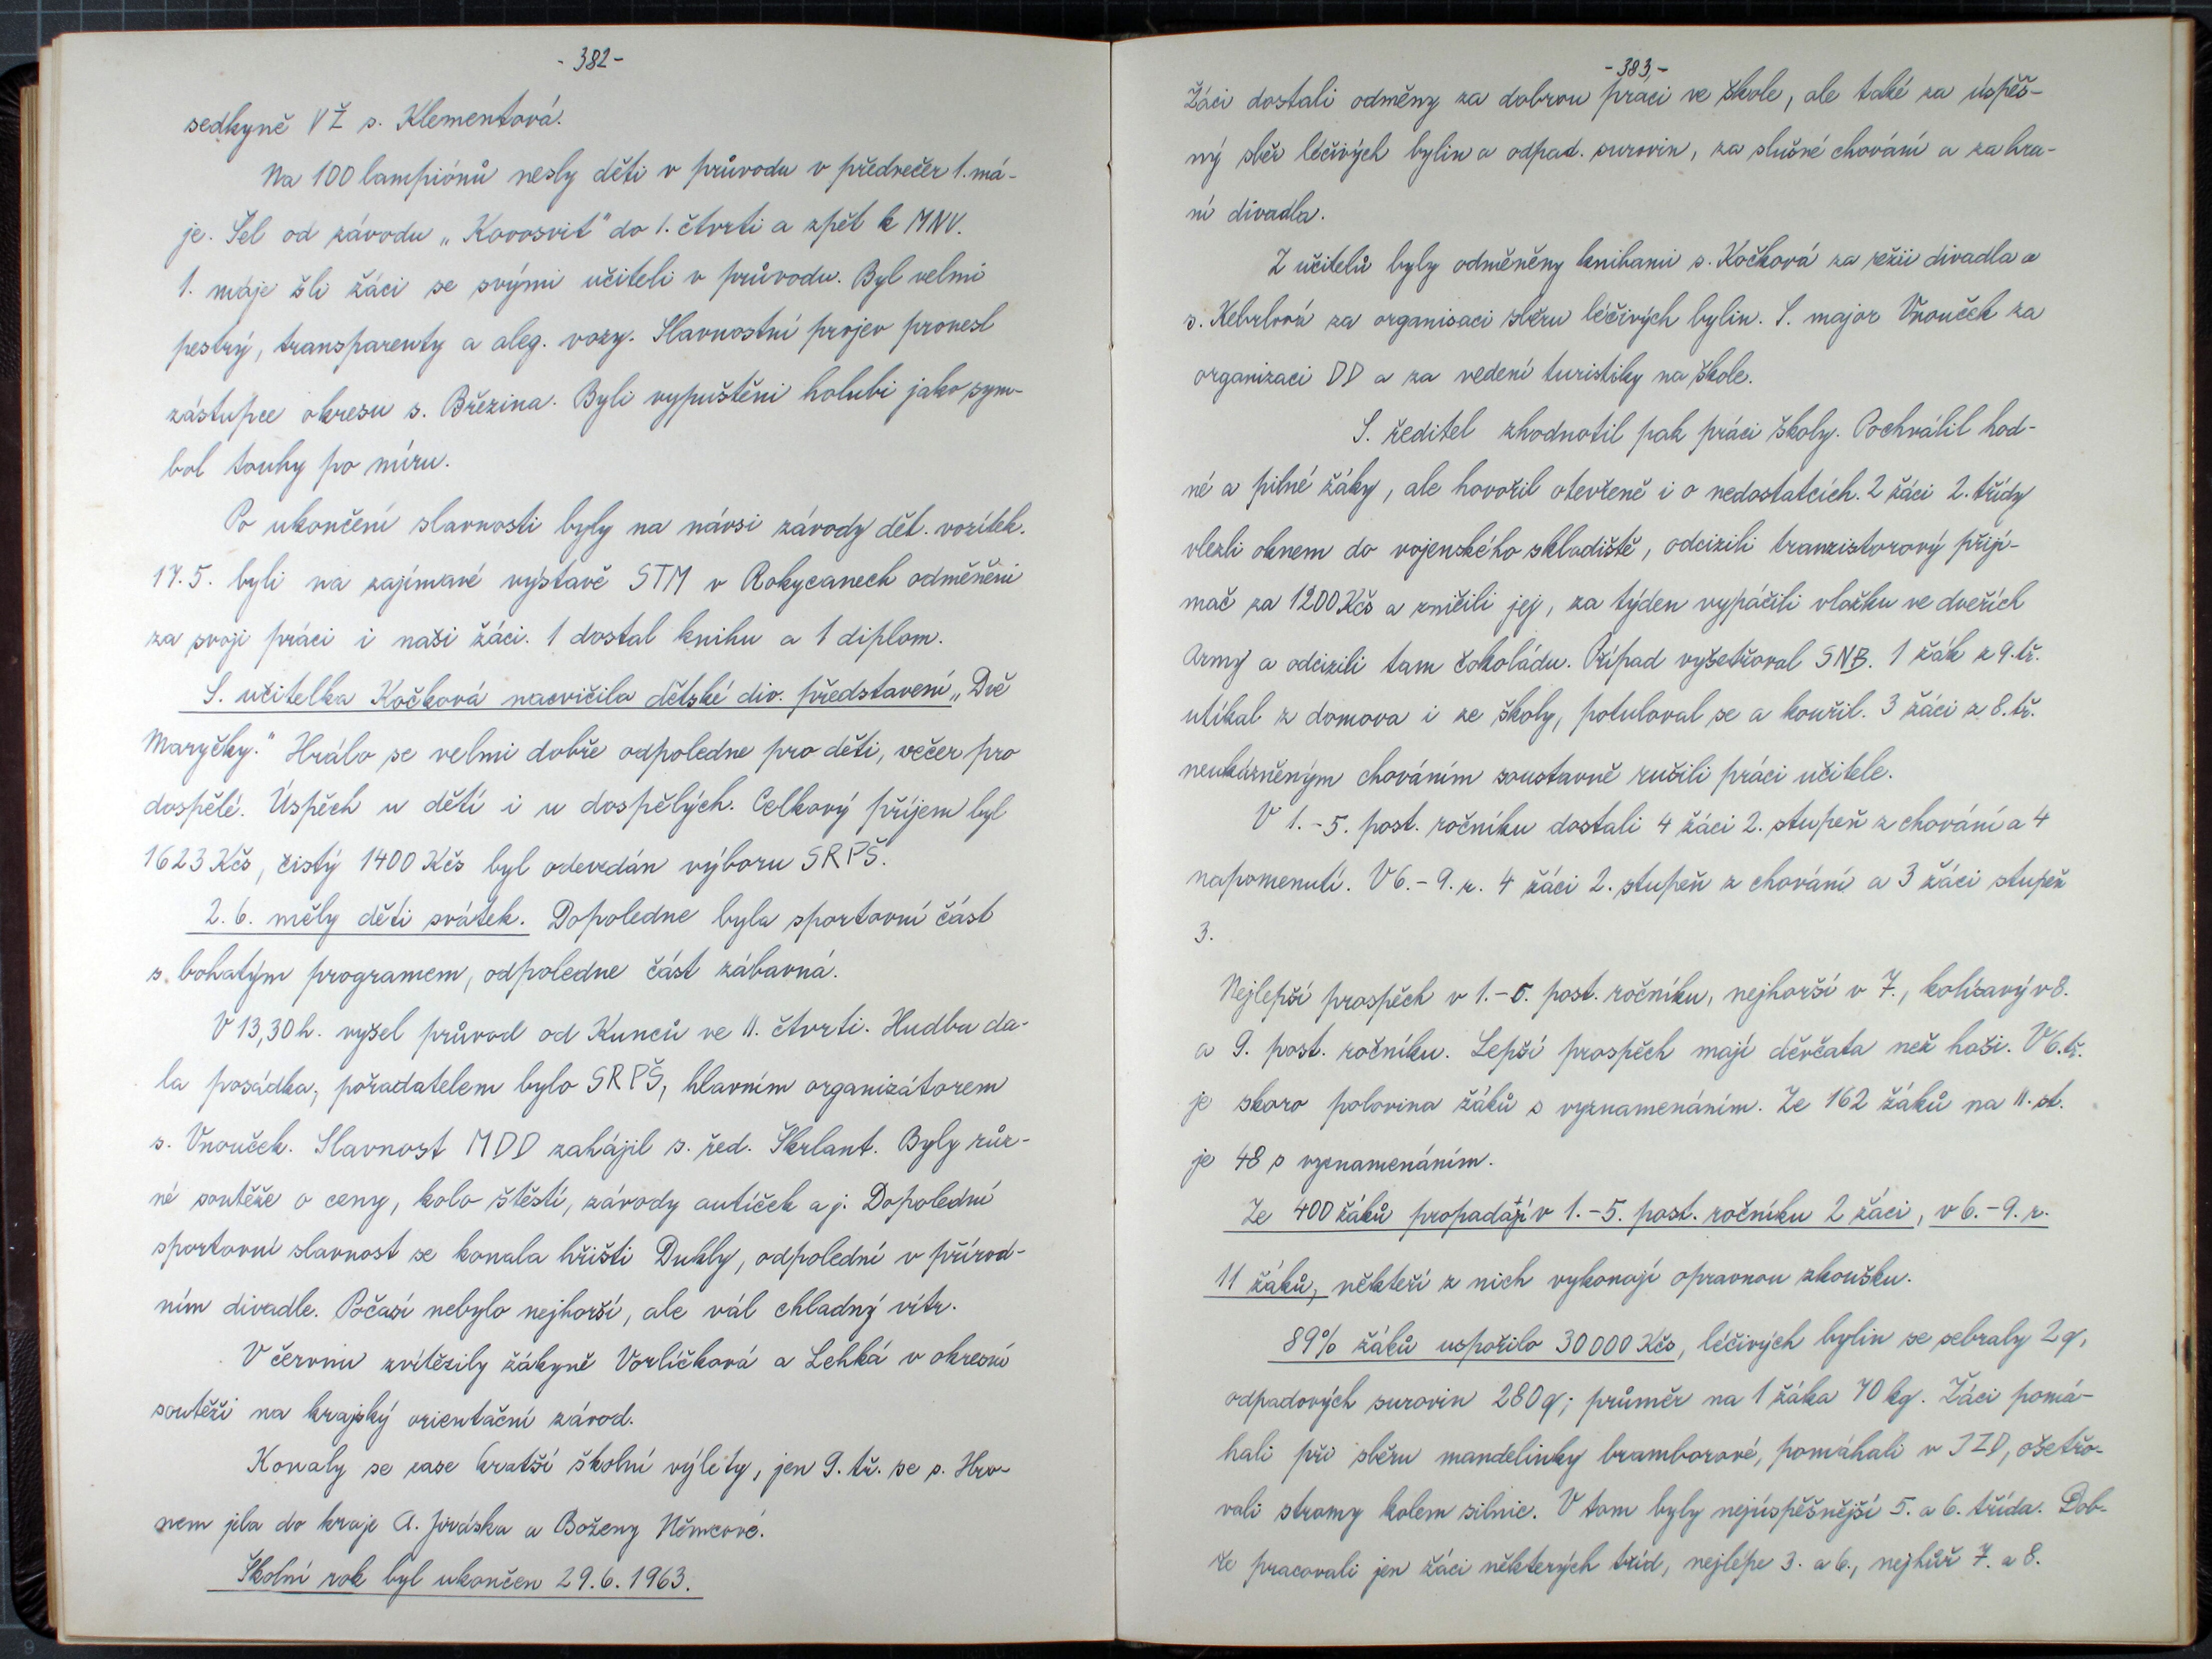 - 382 -
sedkyně VŽ s. Klementová.
Na 100 lampiónů nesly děti v průvodu v předvečer 1. má-
je. Šel od závodu „Kovosvit" do 1. čtvrti a zpět k MNV.
1. máje šli žáci se svými učiteli v průvodu. Byl velmi
pestrý, transparenty a aleg. vozy. Slavnostní projev pronesl
zástupce okresu s. Březina. Byli vypuštěni holubi jako sym-
bol touhy po míru.
Po ukončení slavnosti byly na návsi závody dět. vozítek.
17. 5. byli na zajímavé výstavě STM v Rokycanech odměněni
za svoji práci i naši žáci. 1 dostal knihu a 1 diplom.
S. učitelka Kočková nacvičila dětské div. představení „Dvě
Maryčky." Hrálo se velmi dobře odpoledne pro děti, večer pro
dospělé. Úspěch u dětí i u dospělých. Celkový příjem byl
1623 Kčs, čistý 1400 Kčs byl odevzdán výboru SRPŠ.
2. 6. měly děti svátek. Dopoledne byla sportovní část
s bohatým programem, odpoledne část zábavná.
V 13,30 h. vyšel průvod od Kunců ve II. čtvrti. Hudbu da-
la posádka, pořadatelem bylo SRPŠ, hlavním organizátorem
s. Vnouček. Slavnost MDD zahájil s. řed. Škrlant. Byly růz-
né soutěže o ceny, kolo štěstí, závody autíček aj. Dopolední
sportovní slavnost se konala hřišti Dukly, odpolední v přírod-
ním divadle. Počasí nebylo nejhorší, ale vál chladný vítr.
V červnu zvítězily žákyně Vorlíčková a Lehká v okresní
soutěži na krajský orientační závod.
Konaly se zase kratší školní výlety, jen 9. tř. se s. Hro-
nem jela do kraje A. Jiráska a Boženy Němcové.
Školní rok byl ukončen 29. 6. 1963.
- 383,-
Žáci dostali odměny za dobrou práci ve škole, ale také za úspěš-
ný sběr léčivých bylin a odpad. surovin, za slušné chování a za hra-
ní divadla.
Z učitelů byly odměněny knihami s. Kočková za režii divadla a
s. Kebrlová za organisaci sběru léčivých bylin. S. major Vnouček za
organizaci DD a za vedení turistiky na škole.
S. ředitel zhodnotil pak práci školy. Pochválil hod-
né a pilné žáky, ale hovořil otevřeně i o nedostatcích. 2 žáci 2. třídy
vlezli oknem do vojenského skladiště, odcizili tranzistorový přijí-
mač za 1200 Kčs a zničili jej, za týden vypáčili vložku ve dveřích
Army a odcizili tam čokoládu. Případ vyšetřoval SNB. 1 žák z 9. tř.
utíkal z domova i ze školy, potuloval se a kouřil. 3 žáci z 8. tř.
neukázněným chováním soustavně rušili práci učitele.
V 1.-5. post. ročníku dostali 4 žáci 2. stupeň z chování a 4
napomenutí. V 6.-9. r. 4 žáci 2. stupeň z chování a 3 žáci stupeň
3.
Nejlepší prospěch v 1.-5. post. ročníku, nejhorší v 7., kolísavý v 8.
a 9. post. ročníku. Lepší prospěch mají děvčata než hoši. V 6. tř.
je skoro polovina žáků s vyznamenáním. Ze 162 žáků na II. st.
je 48 s vyznamenáním.
Ze 400 žáků propadají v 1.-5. post. ročníku 2 žáci, v 6.-9. r.
11 žáků, někteří z nich vykonají opravnou zkoušku.
89% žáků uspořilo 30 000 Kčs, léčivých bylin se sebraly 2 q,
odpadových surovin 280 q; průměr na 1 žáka 70 kg. Žáci pomá-
hali při sběru mandelinky bramborové, pomáhali v JZD, ošetřo-
vali stromy kolem silnic. V tom byly nejúspěšnější 5. a 6. třída. Dob-
ře pracovali jen žáci některých tříd, nejlépe 3. a 6., nejhůř 7. a 8.